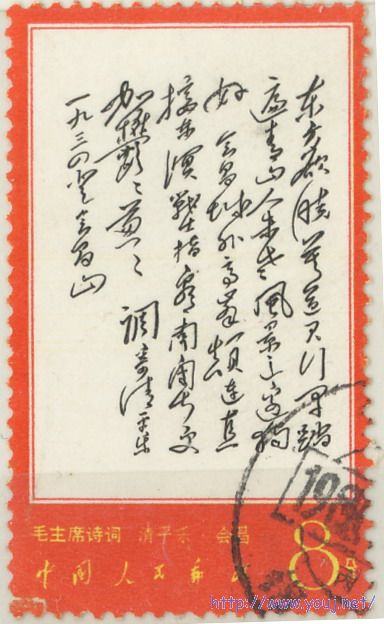 东方欲曉莫道君行早踏
遍青山人未老風景这邊獨
好会昌城外高峯巅連直
接东溟戰士指看南粤更
加鬱々葱々 調寄清平乐
一九三四登会昌山
毛主席诗词 清平乐 会昌
8分
中国人民邮政
198
http://www.youj.net/